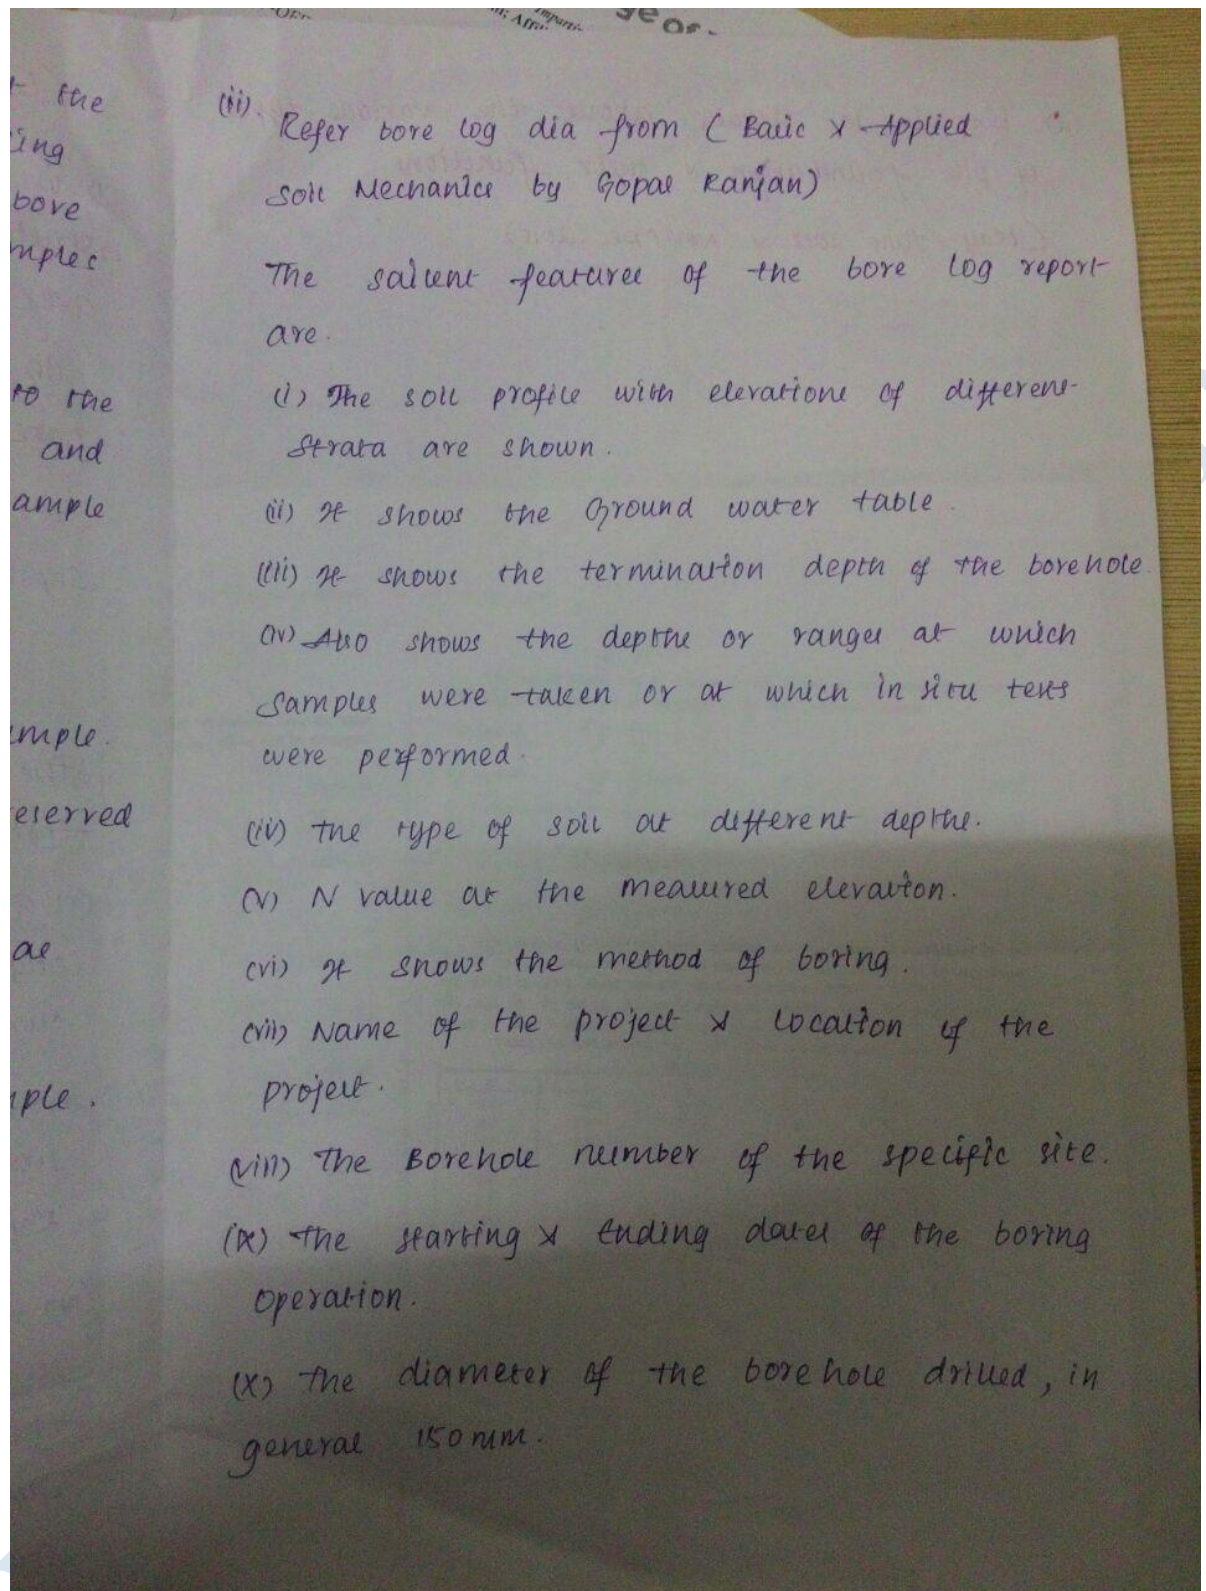 the
ing
bore
mples
to the
and
ample
mple.
eserved
ple.
(ii).
Refer bore log dia from ( Basic & Applied
Soil Mechanics by Gopal Ranjan)
The salient features of the bore log report
are.
(i) The soil profile with elevations of different
strata are shown.
(ii) It shows the Ground water table.
(iii) It shows the termination depth of the borehole.
(iv) Also shows the depths or ranges at which
samples were taken or at which in situ tests
were performed.
(iv) The type of soil at different depths.
(v) N value at the measured elevation.
(vi) It shows the method of boring.
(vii) Name of the project & location of the
project.
(viii) The Borehole number of the specific site.
(ix) The starting & Ending dates of the boring
operation.
(x) The diameter of the bore hole drilled, in
general 150 mm.